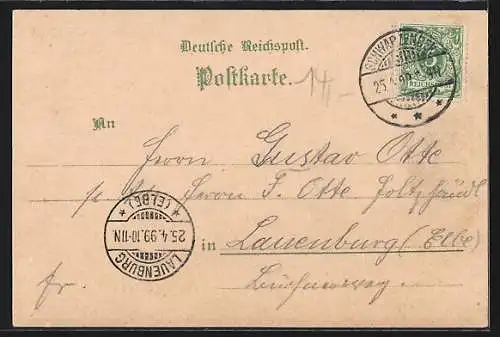 Deutsche Reichspost.
Postkarte.
14
SCHWARZENBEK
25.4.99
REICHSPOST
An
Herrn Gustav Otte
p. A. Herrn F. Otte Holzhändl
in Lauenburg (Elbe)
fr.
LAUENBURG
25.4.99.10-11N.
* (ELBE) *